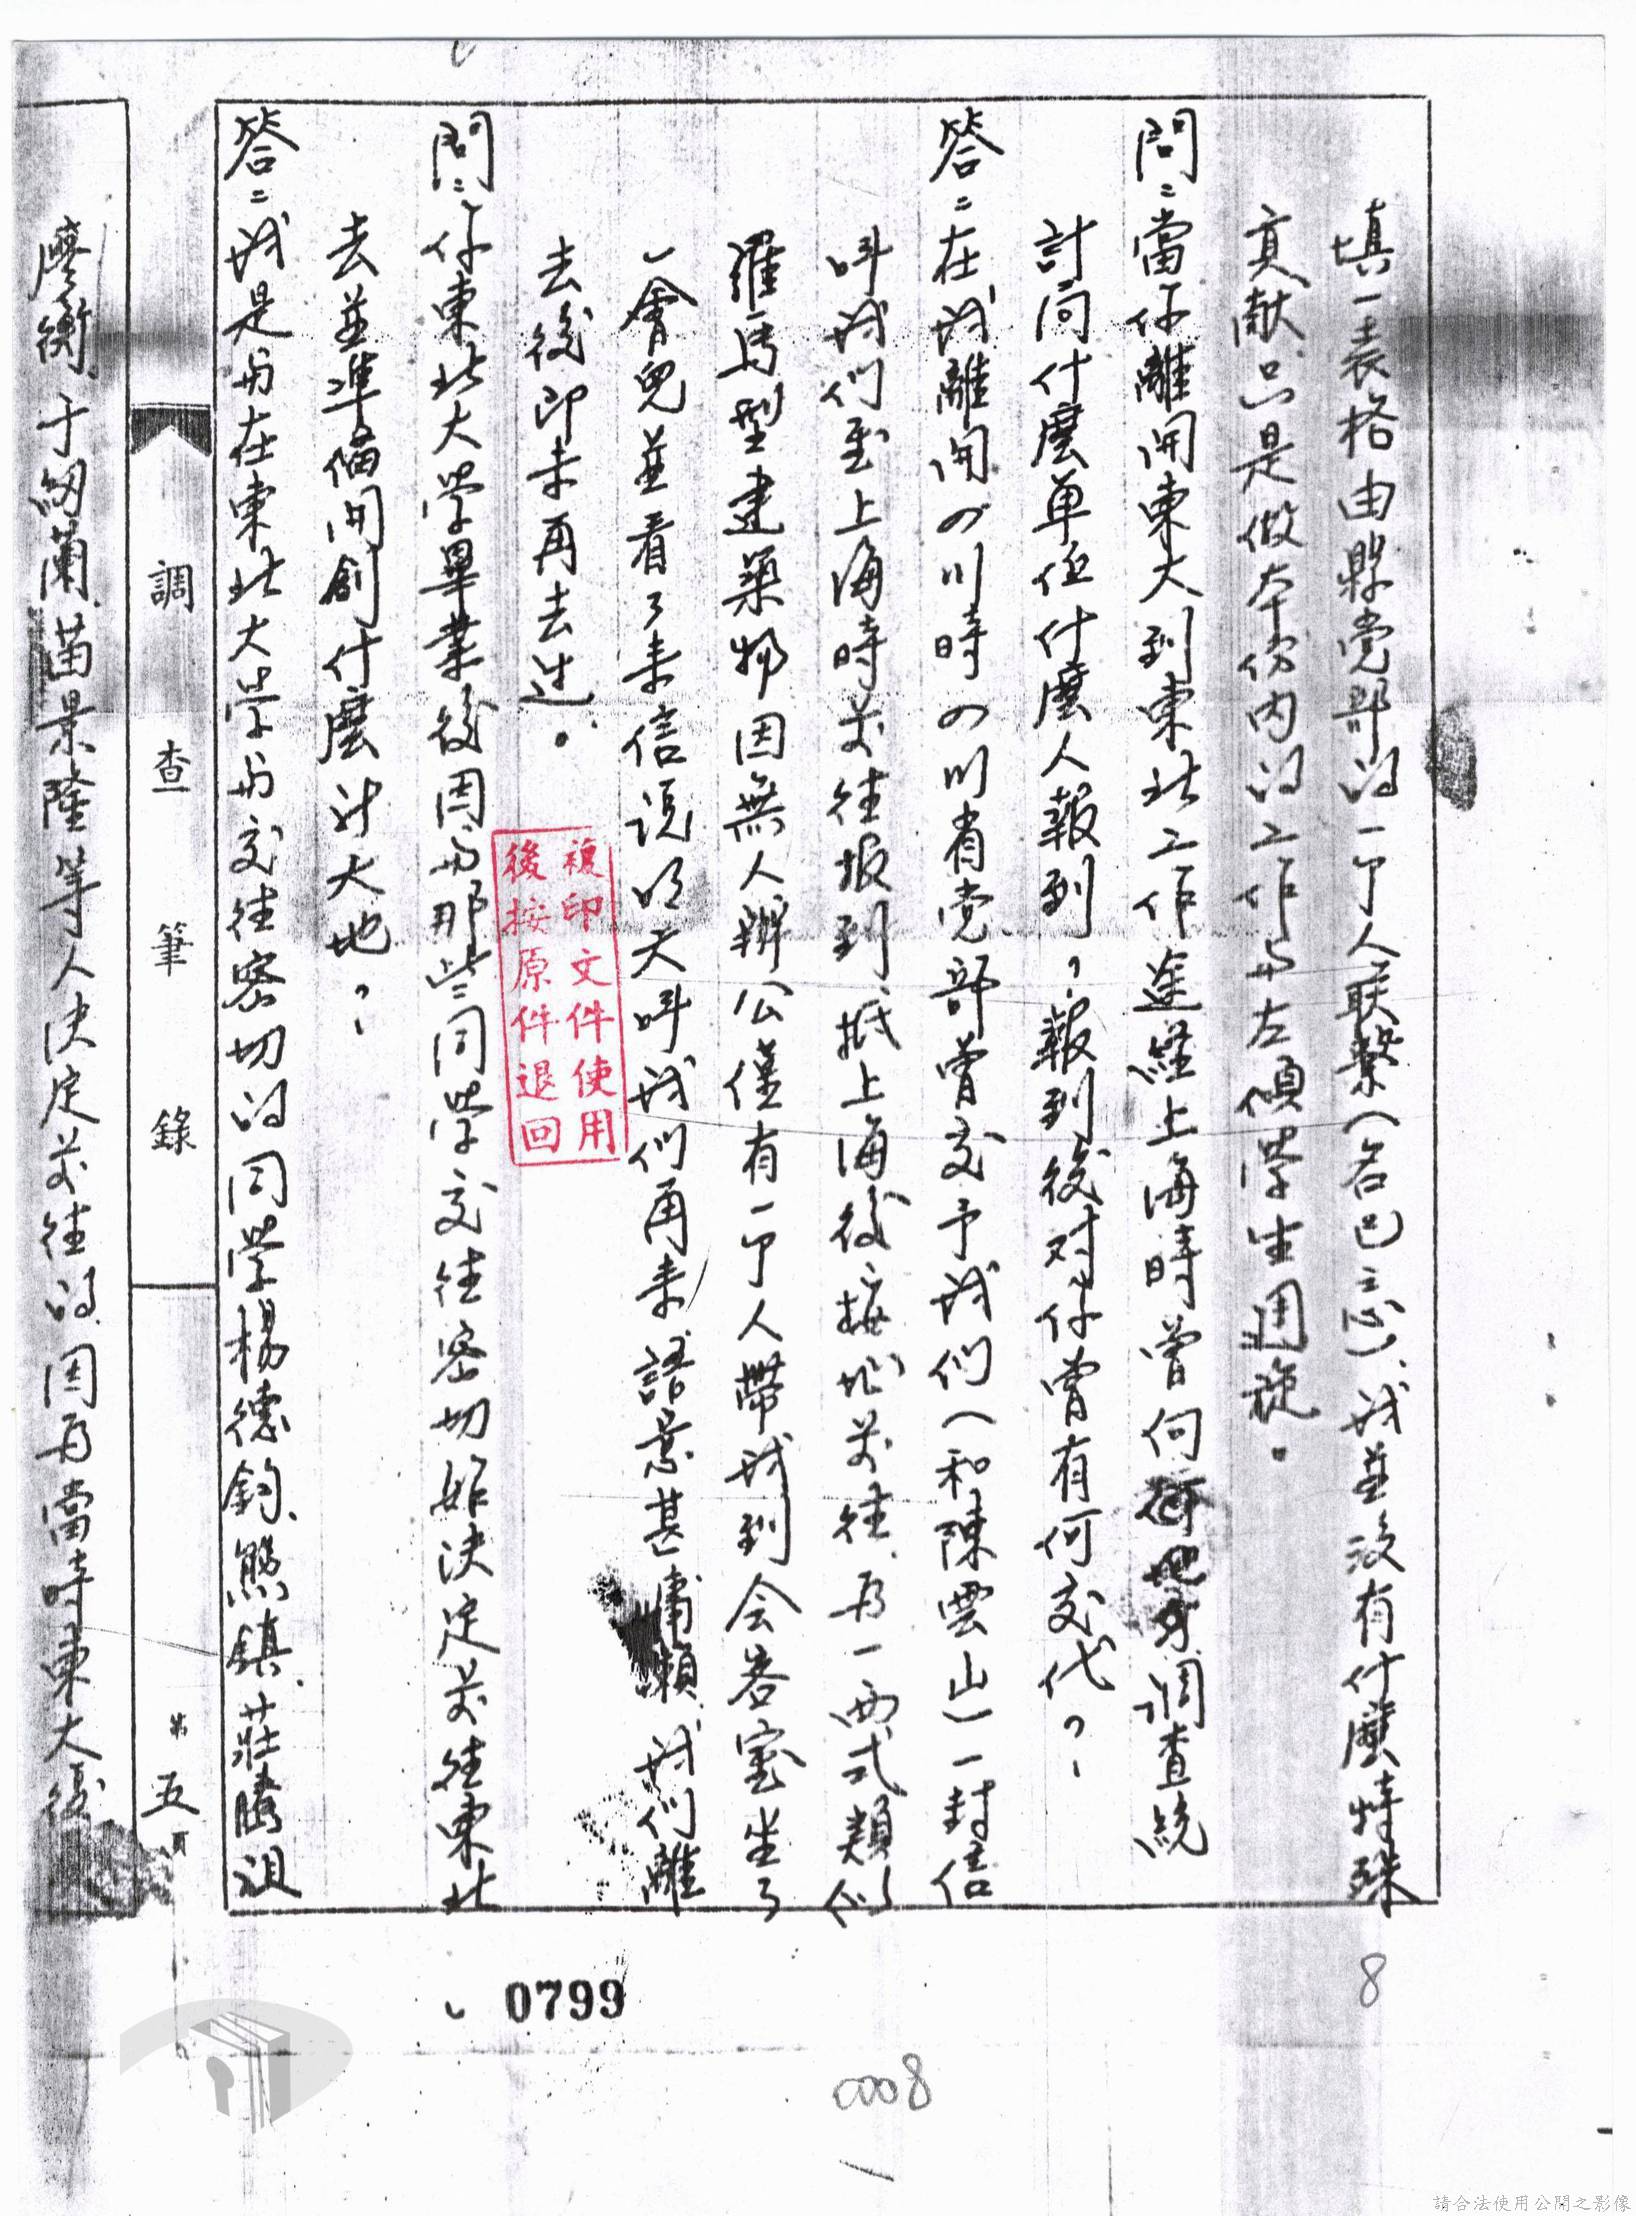 填一表格由縣党部的一个人联繫(名已忘)、我並没有什麼特殊
貢献、只是做本份内的工作与左傾学生週旋。
問:當你離開東大到東北工作途經上海時曾向調查統
計局什麼单位什麼人報到?報到後对你曾有何交代?
答:在我離開四川時四川省党部曾交予我們(和陳雲山)一封信
叫我們至上海時前往报到、抵上海後按址前往、为一西式類似
羅馬型建築物因無人辦公僅有一个人帶我到会客室坐了
一會兒並看了来信說明天叫我們再来、語意甚庸懶、我们離
去後即未再去过。
問:你東北大学畢業後因与那些同学交往密切始决定前往東北
去並準備開創什麼新天地?
答:我是与在東北大学与交往密切的同学楊德鈞、熊鎮、莊騰祖
廖衡、于紉蘭、苗景隆等人决定前往的、因为當時東大後
調查筆錄
第五頁
複印文件使用
後按原件退回
8
0799
0008
請合法使用公開之影像